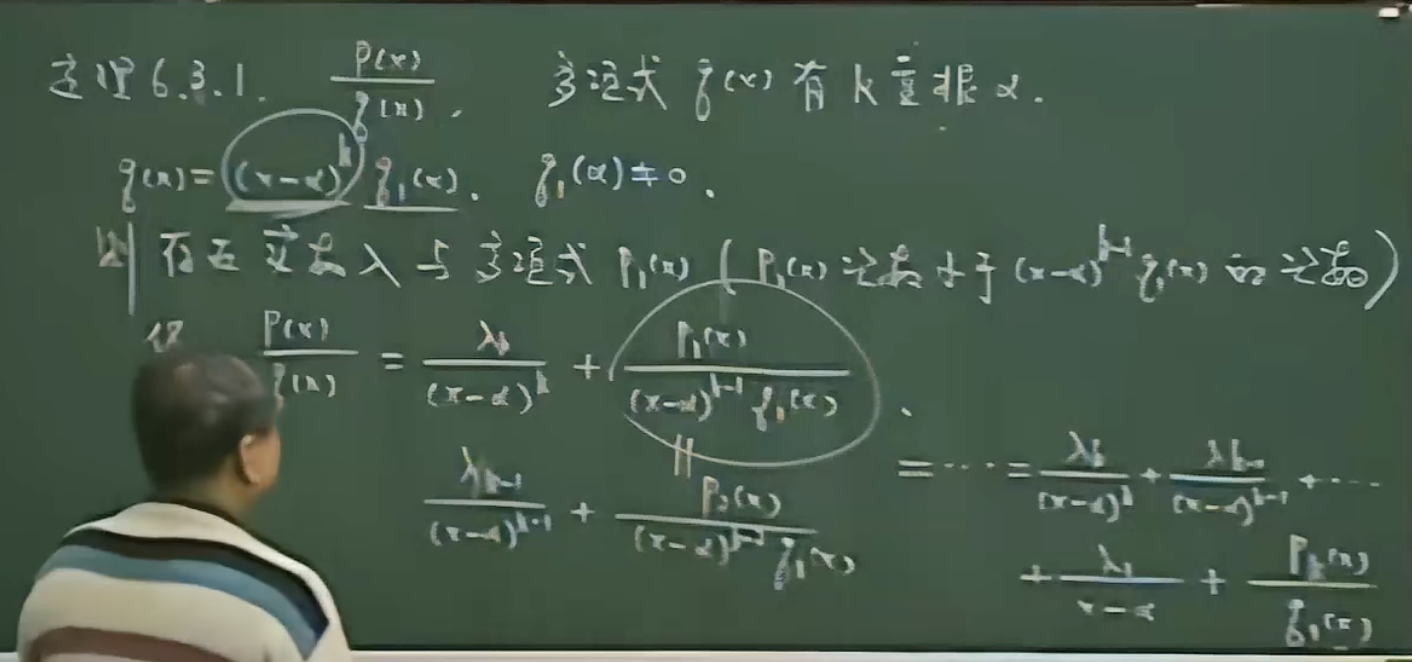 定理6.3.1. p(x)/q(x). 多项式 q(x) 有 k 重根 α.
q(x)=(x-α)^k q₁(x). q₁(α)≠0.
则存在实数 λ 与多项式 p₁(x) (p₁(x) 次数小于 (x-α)^{k-1} q₁(x) 的次数)
使 p(x)/q(x) = λ_k/(x-α)^k + p₁(x)/((x-α)^{k-1} q₁(x)).
λ_{k-1}/(x-α)^{k-1} + p₂(x)/((x-α)^{k-2} q₁(x)) = ⋯ = λ_k/(x-α)^k + λ_{k-1}/(x-α)^{k-1} + ⋯
+ λ₁/(x-α) + p_k(x)/q₁(x)